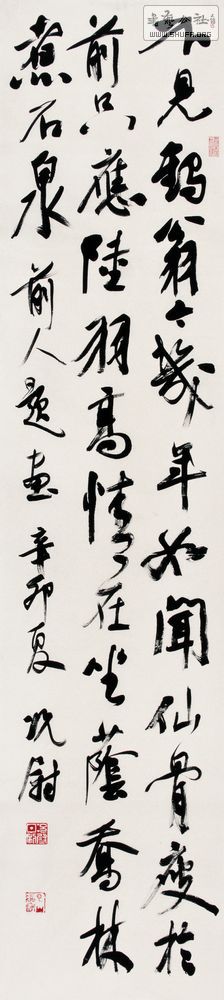 不見鶴翁今幾年如聞仙骨瘦於
前只應陸羽高情在坐蔭喬林
煮石泉 前人題畫 辛卯夏 况尉
WWW.SHUFA.ORG